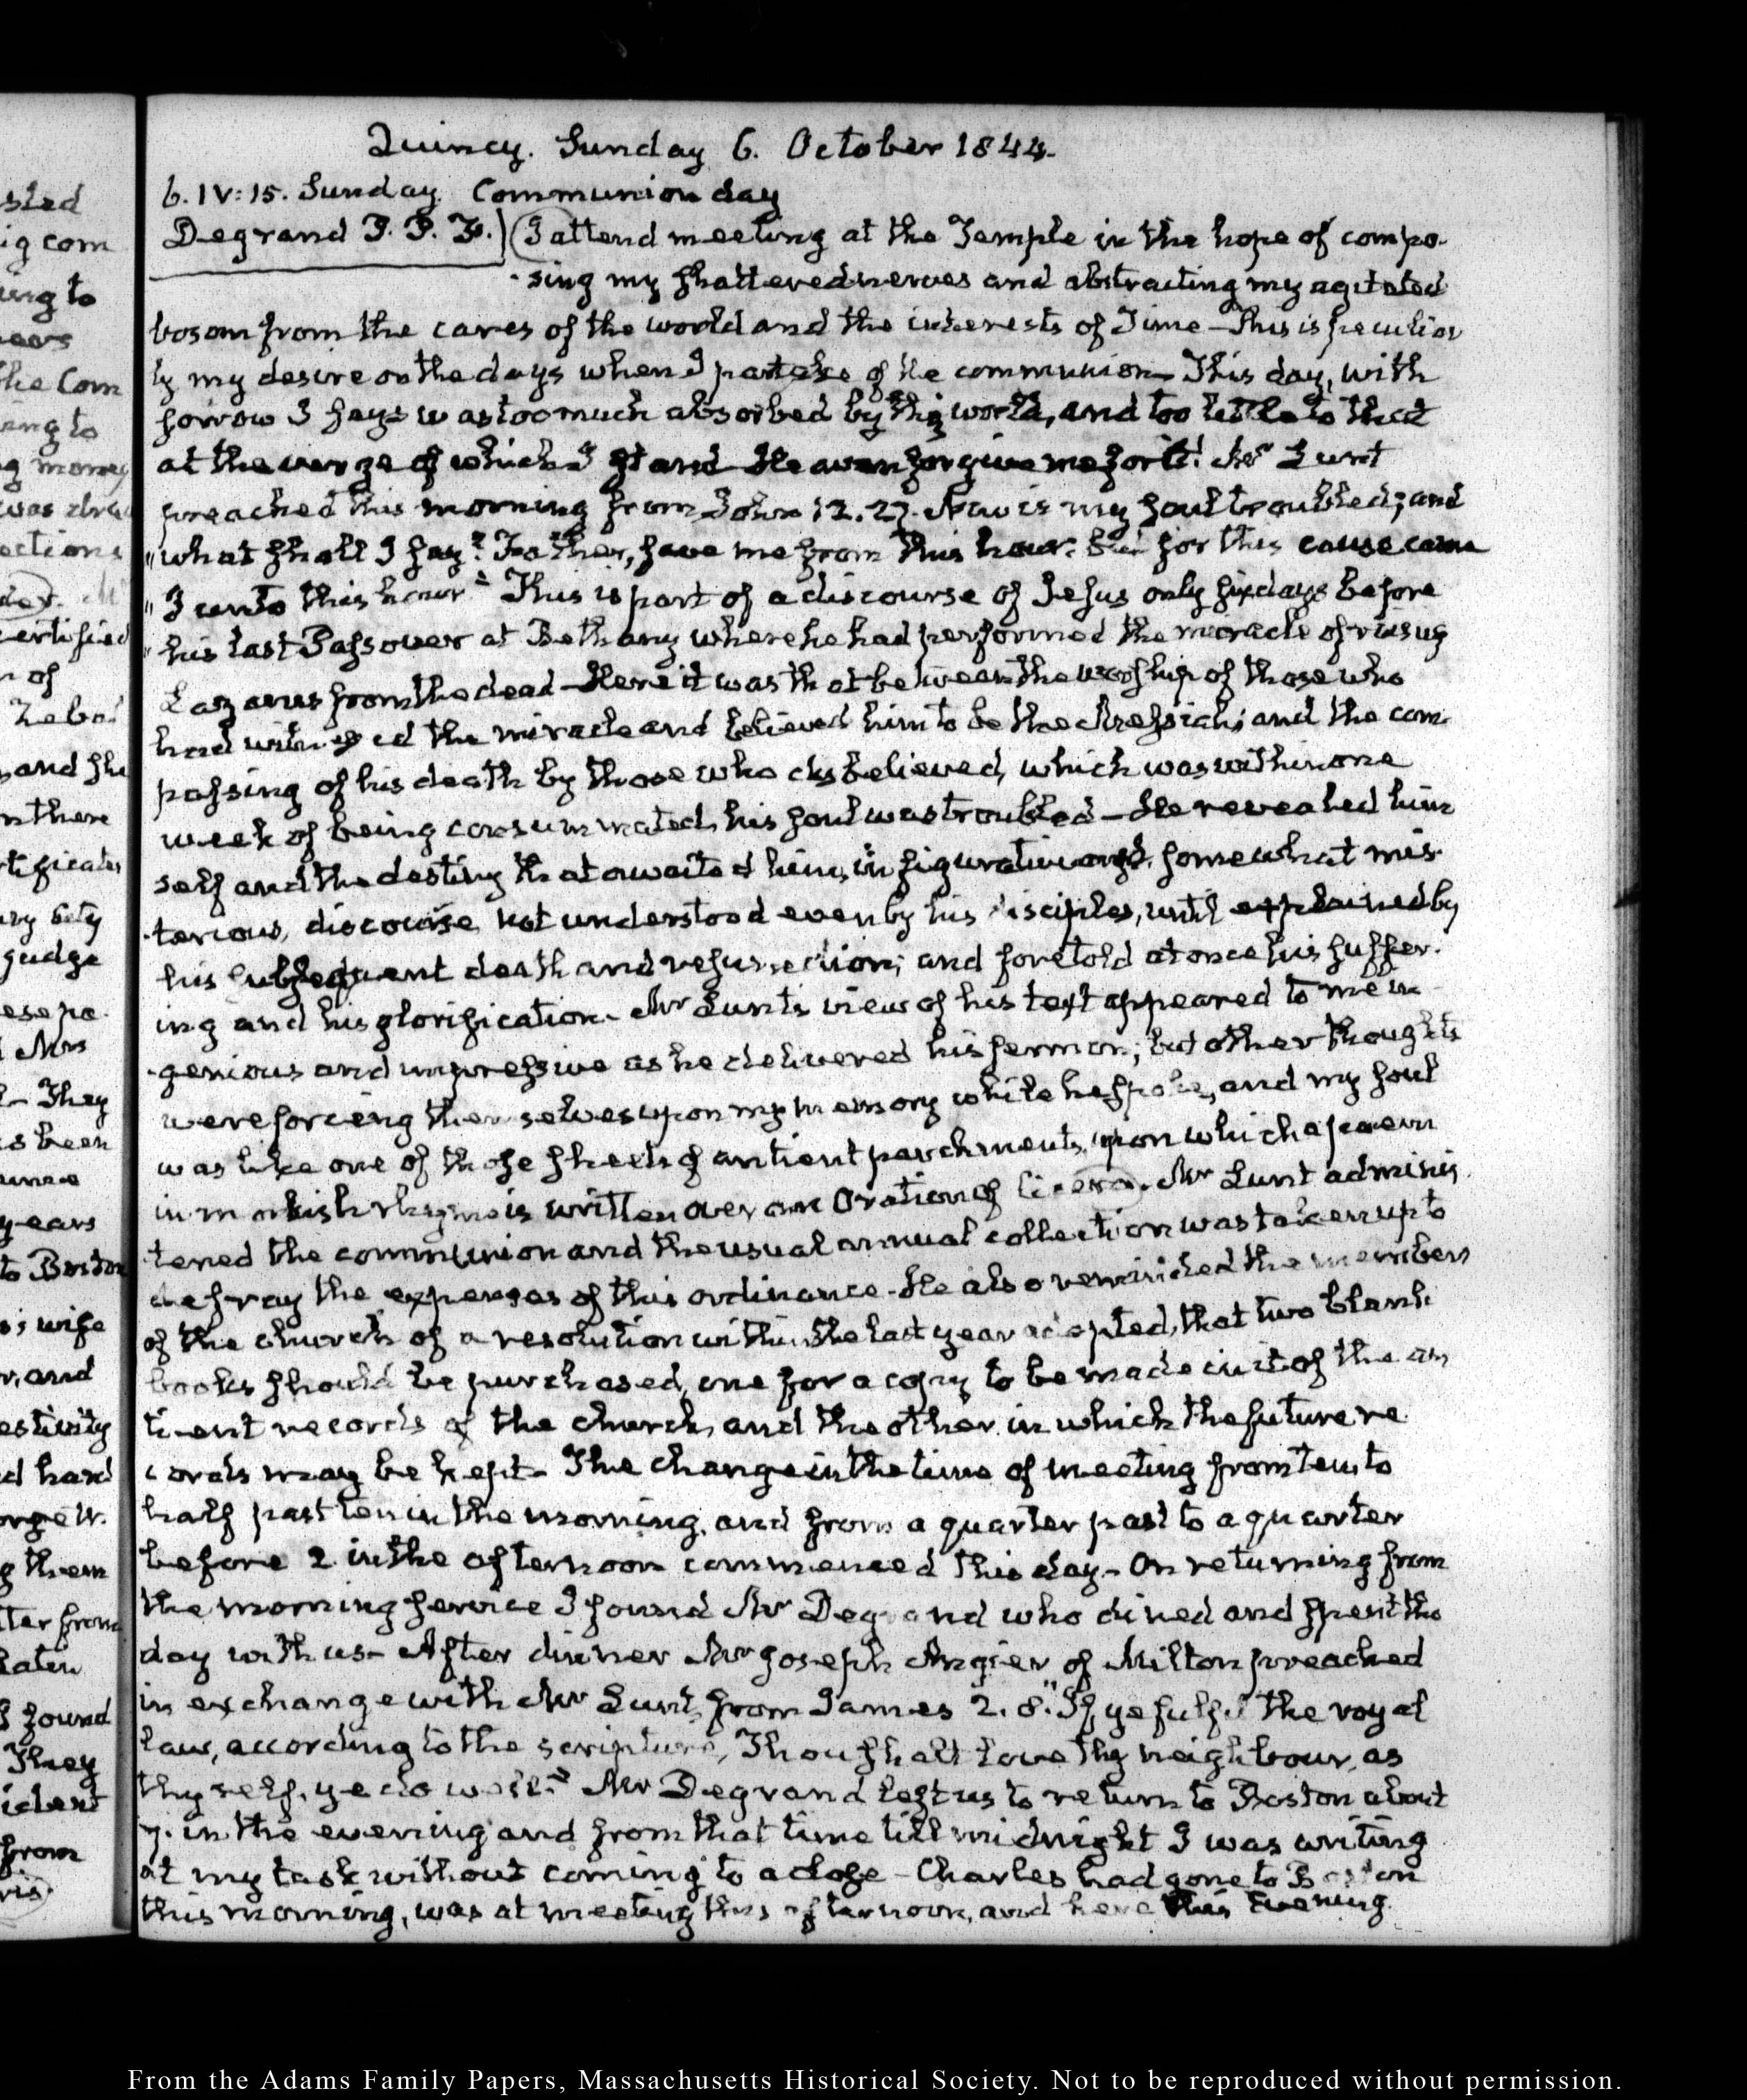 Quincy. Sunday 6. October 1844.
6. IV:15. Sunday. Communion day
Degrand P. P. F.) I attend meeting at the Temple in the hope of compo-
sing my shattered nerves and abstracting my agitated
bosom from the cares of the world and the interests of Time – This is peculiar
ly my desire on the days when I partake of the communion – This day, with
sorrow I say I was too much absorbed by this world, and too little to that
at the verge of which I stand – Heaven forgive me for it! Mr Lunt
preached this morning from John 12.27. Now is my soul troubled; and
"what shall I say? Father, save me from this hour: but for this cause came
"I unto this hour" This is part of a discourse of Jesus only six days before
" his last Passover at Bethany where he had performed the miracle of raising
Lazarus from the dead – Here it was that between the worship of those who
had witnessed the miracle and believed him to be the Messiah; and the com-
passing of his death by those who disbelieved, which was within one
week of being consummated, his soul was troubled – He revealed him
self and the destiny that awaited him, in figurative and somewhat mis-
terious, discourse, not understood even by his disciples, until explained by
his subsequent death and resurrection; and foretold at once his suffer-
ing and his glorification – Mr Lunt's view of his text appeared to me in-
genious and impressive as he delivered his sermon; but other thoughts
were forcing themselves upon my memory while he spoke, and my soul
was like one of those sheets of antient parchment, upon which a
in monkish rhyme is written over an Oration of Cicero. Mr Lunt adminis-
tered the communion and the usual annual collection was taken up to
defray the expenses of this ordinance – He also reminded the members
of the church of a resolution within the last year adopted, that two blank
books should be purchased, one for a copy to be made in it of the an
tient records of the church, and the other in which the future re
cords may be kept – The change in the time of meeting from ten, to
half past ten in the morning, and from a quarter past to a quarter
before 2 in the afternoon commenced this day – On returning from
the morning service I found Mr Degrand who dined and spent the
day with us – After dinner Mr Joseph Angier of Milton preached
in exchange with Mr Lunt, from James 2. 8. "If ye fulfil the royal
law, according to the scripture, Thou shalt love thy neighbour, as
thyself, ye do well." Mr Degrand left us to return to Boston about
7. in the evening and from that time till midnight I was writing
at my task without coming to a close – Charles had gone to Boston
this morning, was at meeting this afternoon, and here this Evening.
From the Adams Family Papers, Massachusetts Historical Society. Not to be reproduced without permission.